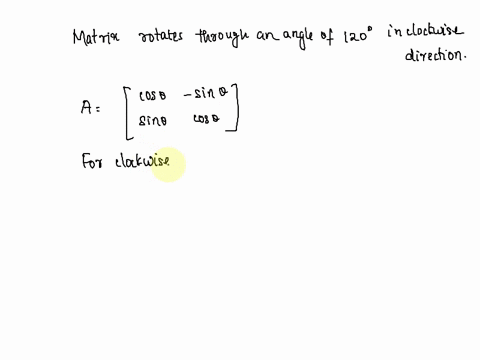 Matrix rotates through an angle of 120° in clockwise
direction.
A = [ cosθ -sinθ
sinθ cosθ ]
For clockwise